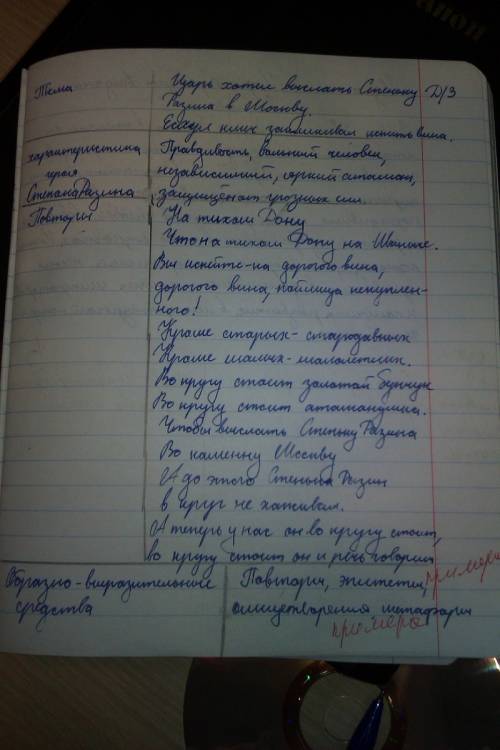 Тема Царь хотел выслать Степану Д/З
Разина в Москву.
Есаул них запыликивал испить вина.
характеристика Правдивость, вольный человек,
героя независимый, яркий атаман,
Степана Разина защищает грозных сил.
Повторы На тихом Дону
Что на тихом Дону на Иваныче.
Вы испейте-ка дорогого вина,
дорогого вина, пойлица некуплен-
ного!
Кроме старых-стародавних
Кроме малых-малолетних.
Во кругу стоит золотой бунчук
Во кругу стоит атаманушка.
Чтобы выслать Степьку Разина
Во каменну Москву
А до этого Степька Разин
в круг не хаживал.
А теперь у нас он во кругу стоит,
во кругу стоит он и речь говорит
Образно-выразительные Повторы, эпитеты, примеры
средства олицетворения метафоры
примеры